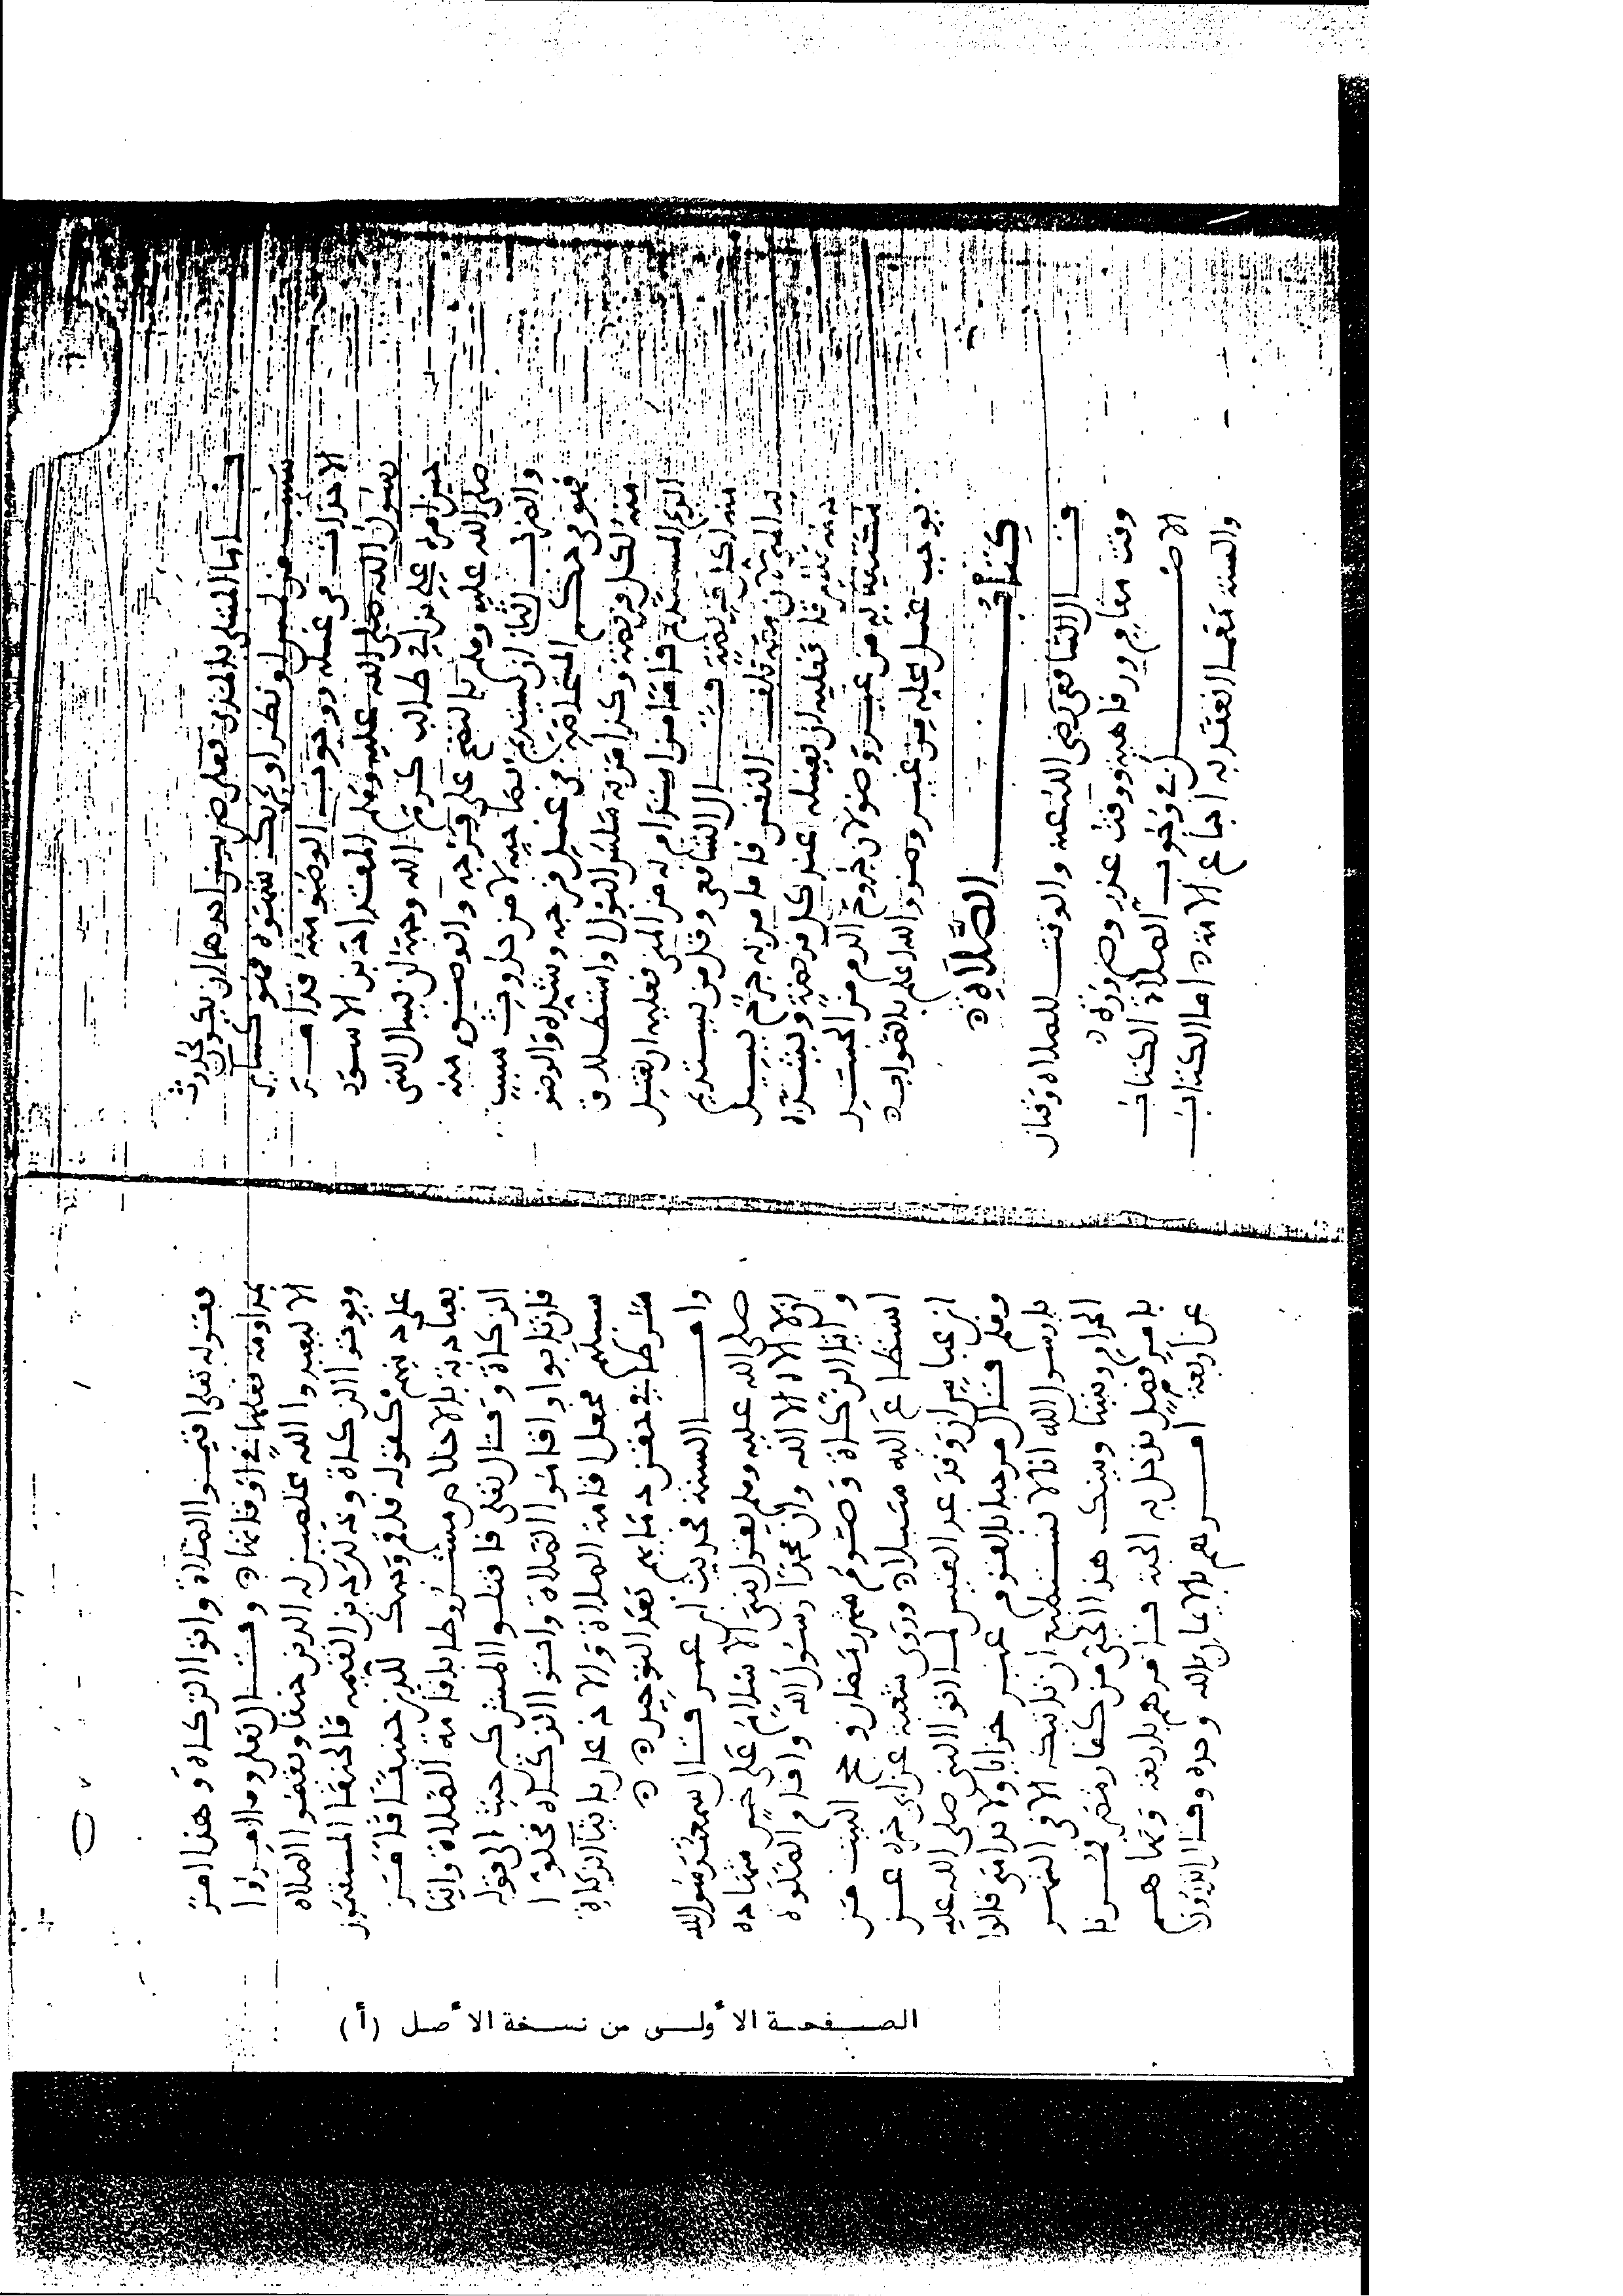 فاما المبتلى بالمذي فعلى ضربين احدهما ان يكون لحدوث
سبب من لمس او نظر او تحرك شهوة فهو كساير
الاحداث في غسله ووجوب الوضوء منه قد امر
رسول الله صلى الله عليه وسلم المقداد بن الاسود
حين امره علي بن ابي طالب كرم الله وجهه ان يسال النبي
صلى الله عليه وسلم بالنضح على فرجه والوضوء منه
والضرب الثاني ان يستديم لا من حدوث سبب
فهو في حكم المستحاضة في غسل فرجه وشده والوضو
منه لكل فريضة وكذا من به سلس البول او استطلاق
الريح المستديم فاما من استدام به من المني فعليه ان يغتسل
منه لكل فريضة قال الشافعي وقل من يستديم
به المني لان معه تلف النفس فاما من به جرح يسيل
دمه فعليه ان يغسله عند كل فريضة ويشده
من غير وضو لان خروج الدم من الجسد
يوجب غسل محله من غير وضو والله اعلم بالصواب
كتاب الصلاة
قال الشافعي رضي الله عنه والوقت للصلاة وقتان
وقت مقام ورفاهية ووقت عذر وضرورة
الاصل في وجوب الصلاة الكتاب
والسنة مع ما انعقد به اجماع الامة اما الكتاب
فقوله تعلى اقيموا الصلاة واتوا الزكاة وهذا امر
بمداومة فعلها في اوقاتها وقال تعلى وما امروا
الا ليعبدوا الله مخلصين له الدين حنفا ويقيموا الصلاة
ويوتوا الزكاة وذلك دين القيمة فالحنفا المستقيمون
على دينهم كقوله فاقم وجهك للدين حنيفا فامر
بعبادته بالاخلاص مشروطا باقامة الصلاة وايتا
الزكاة وقال تعلى فاقتلوا المشركين حيث الى قوله
فان تابوا واقاموا الصلاة واتوا الزكاة فخلوا
سبيلهم فجعل اقامة الصلاة والاذعان بايتا الزكاة
شرطا في حقن دمايهم بعد التوحيد
واما السنة فحديث ابن عمر قال سمعت رسول الله
صلى الله عليه وسلم يقول بني الاسلام على خمس شهادة
ان لا اله الا الله وان محمدا رسول الله واقام الصلوة
وايتا الزكاة وصوم شهر رمضان وحج البيت من
استطاع اليه سبيلا وروى شعبة عن ابي جمرة عن
ابن عباس ان وفد عبد القيس لما اتوا النبي صلى الله عليه
وسلم قال مرحبا بالقوم غير خزايا ولا ندامى قالوا
يا رسول الله انا لا نستطيع ان ناتيك الا في الشهر
الحرام وبيننا وبينك هذا الحي من كفار مضر فمرنا
بامر فصل ندخل به الجنة فامرهم باربعة ونهاهم
عن اربعة امرهم بالايمان بالله وحده وقال اتدرون
الصفحة الأولى من نسخة الأصل (أ)